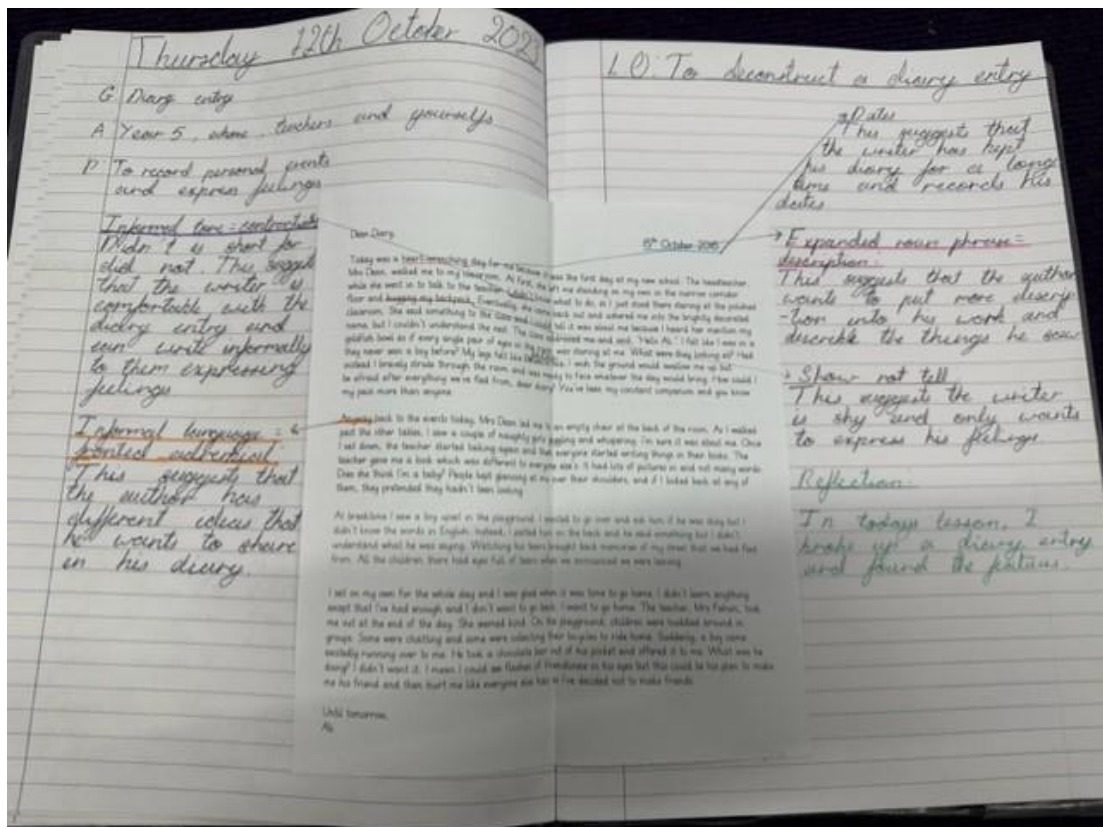 Thursday 12th October 2023
G Diary entry
A Year 5, teachers and yourselfs
P To record personal events
and express feelings
Informal tone = contractions
Didn't is short for
did not. This suggests
that the writer is
comfortable with the
diary entry and
can write informally
to them expressing
feelings
Informal language =
fronted adverbial:
This suggests that
the author has
different ideas that
he wants to share
in his diary.
Dear Diary,
15th October 2015
Today was a heart-wrenching day for me because it was the first day at my new school. The headteacher,
Mrs Dean, walked me to my classroom. At first, she left me standing on my own in the narrow corridor
while she went in to talk to the teacher. I didn't know what to do, so I just stood there staring at the polished
floor and hugging my backpack. Eventually, she came back out and ushered me into the brightly decorated
classroom. She said something to the class and I could tell it was about me because I heard her mention my
name, but I couldn't understand the rest. The class and said, "Hello Ali." I felt like I was in a
goldfish bowl as if every single pair of eyes in the was staring at me. What were they looking at? Had
they never seen a boy before? My legs felt like I wish the ground would swallow me up but
instead I bravely strode through the room, and was ready to face whatever the day would bring. How could I
be afraid after everything we've fled from, dear diary? You've been my constant companion and you know
my pain more than anyone.
Anyway, back to the events today. Mrs Dean led me to an empty chair at the back of the room. As I walked
past the other tables, I saw a couple of naughty girls giggling and whispering. I'm sure it was about me. Once
I sat down, the teacher started talking again and then everyone started writing things in their books. The
teacher gave me a book which was different to everyone else's. It had lots of pictures in and not many words.
Does she think I'm a baby? People kept glancing at me over their shoulders, and if I looked back at any of
them, they pretended they hadn't been looking.
At breaktime I saw a boy upset in the playground. I wanted to go over and ask him if he was okay but I
didn't know the words in English. Instead, I patted him on the back and he said something but I didn't
understand what he was saying. Watching his tears brought back memories of my street that we had fled
from. All the children there had eyes full of tears when we announced we were leaving.
I sat on my own for the whole day and I was glad when it was time to go home. I didn't learn anything
except that I've had enough and I don't want to go back. I want to go home. The teacher, Mrs took
me out at the end of the day. She seemed kind. On the playground, children were huddled around in
groups. Some were chatting and some were collecting their bicycles to ride home. Suddenly, a boy came
excitedly running over to me. He took a chocolate bar out of his pocket and offered it to me. What was he
doing? I didn't want it. I mean, I could see flashes of friendliness in his eyes but this could be his plan to make
me his friend and then hurt me like everyone else has so I've decided not to make friends.
Until tomorrow,
Ali
L.O: To deconstruct a diary entry
Dates
This suggest that
the writer has kept
his diary for a long
time and records his
dates
Expanded noun phrase =
description:
This suggests that the author
wants to put more descrip
-tion into his work and
describe the things he saw
Show not tell
This suggests the writer
is shy and only wants
to express his feelings
Reflection:
In todays lesson, I
broke up a diary entry
and found the features.